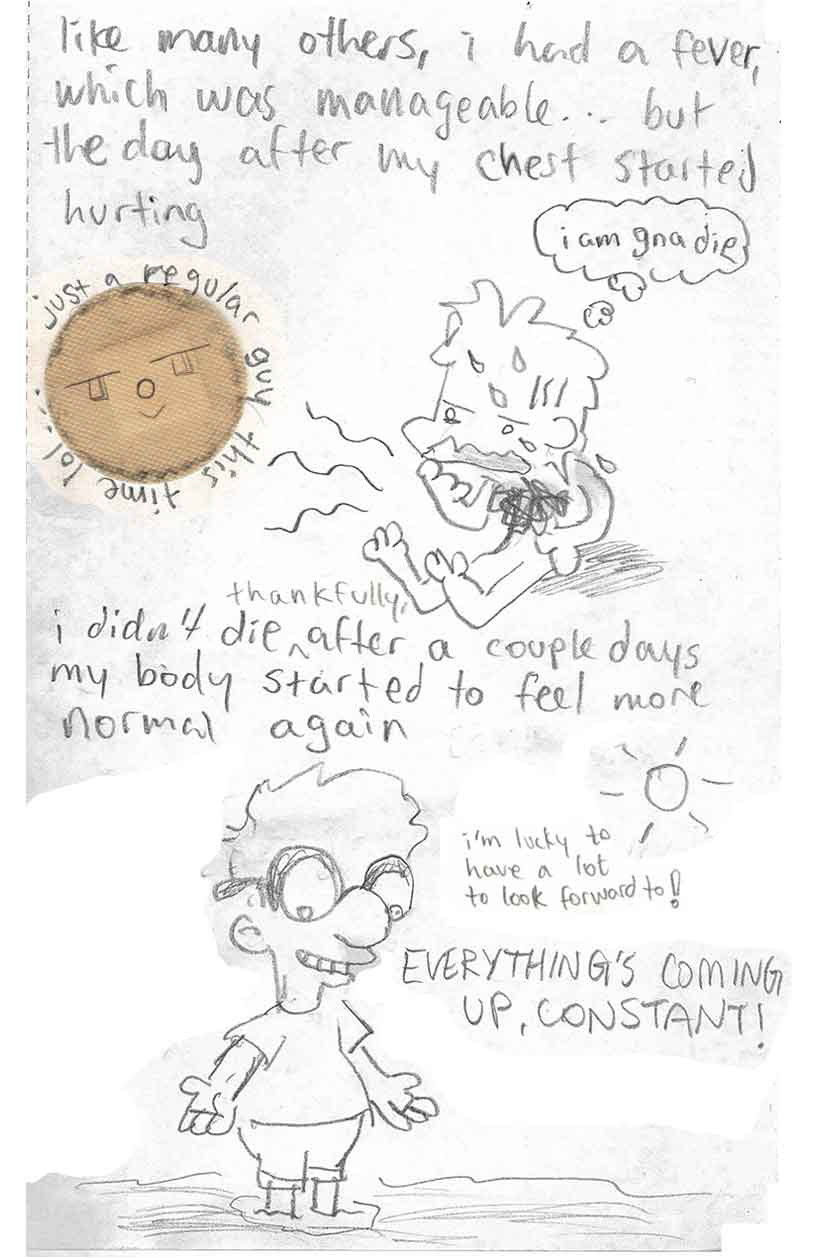 like many others, i had a fever,
which was manageable... but
the day after my chest started
hurting
i am gna die
just a regular guy this time lol...
thankfully,
i didn't die ^ after a couple days
my body started to feel more
normal again
i'm lucky to
have a lot
to look forward to!
EVERYTHING'S COMING
UP, CONSTANT!